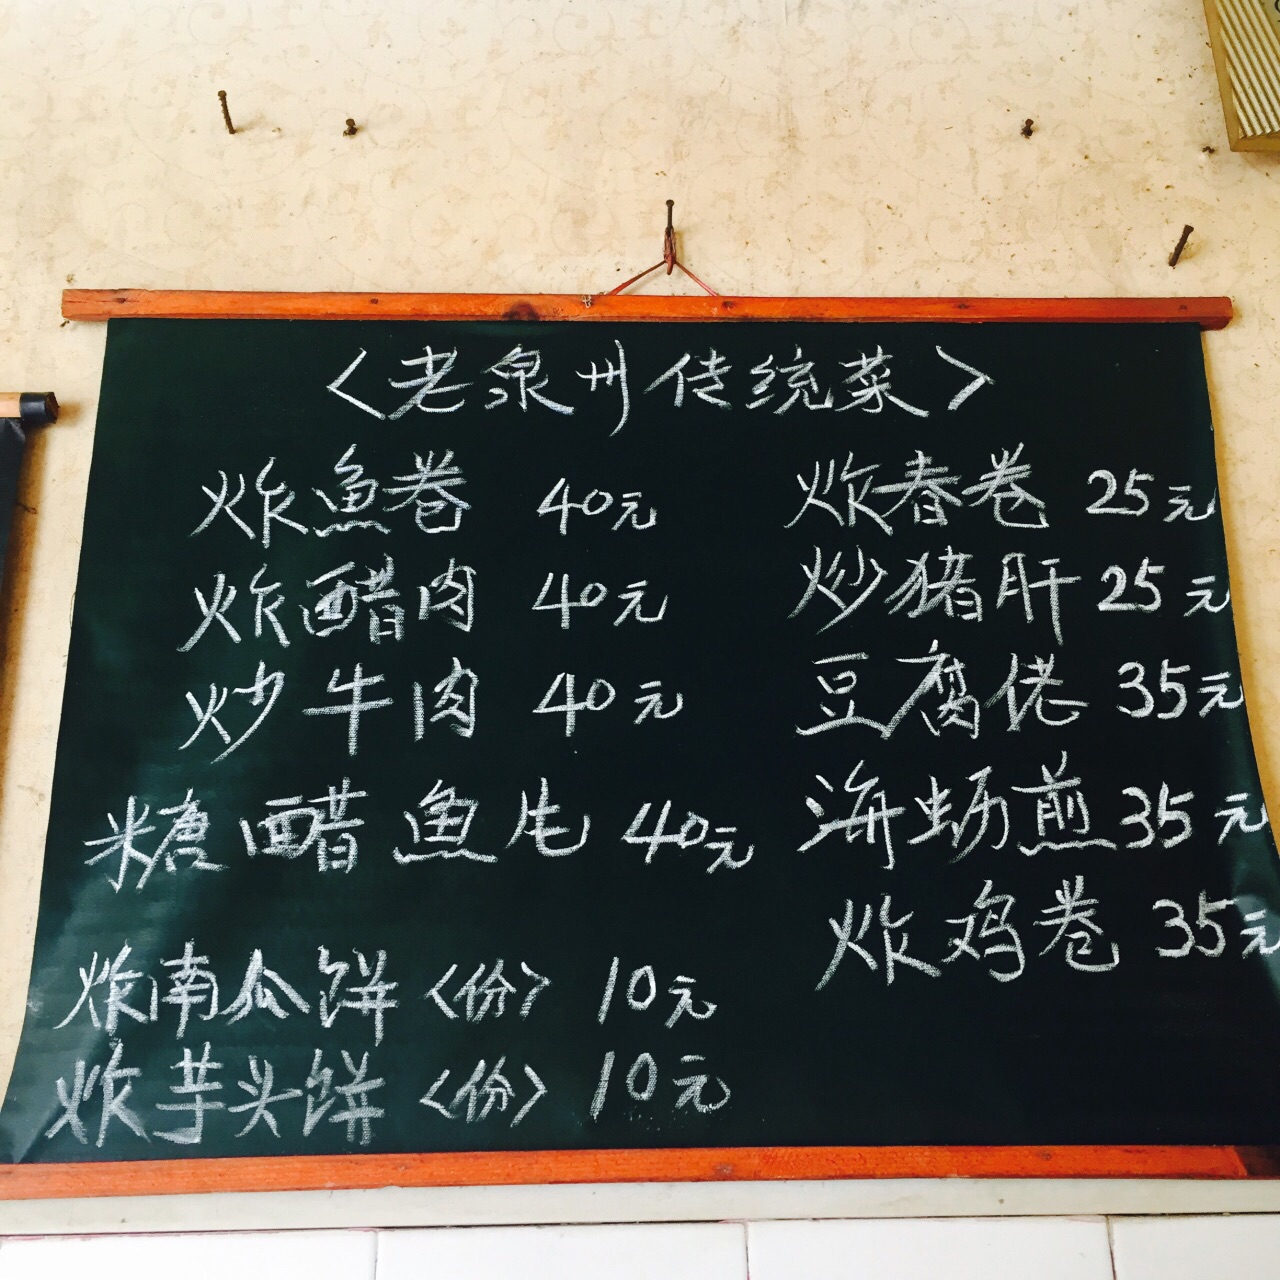 <老泉州传统菜>
炸魚卷 40元
炸醋肉 40元
炒牛肉 40元
糖醋魚片 40元
炸南瓜饼<份> 10元
炸芋头饼<份> 10元
炸春卷 25元
炒猪肝 25元
豆腐佬 35元
海蛎煎 35元
炸鸡卷 35元